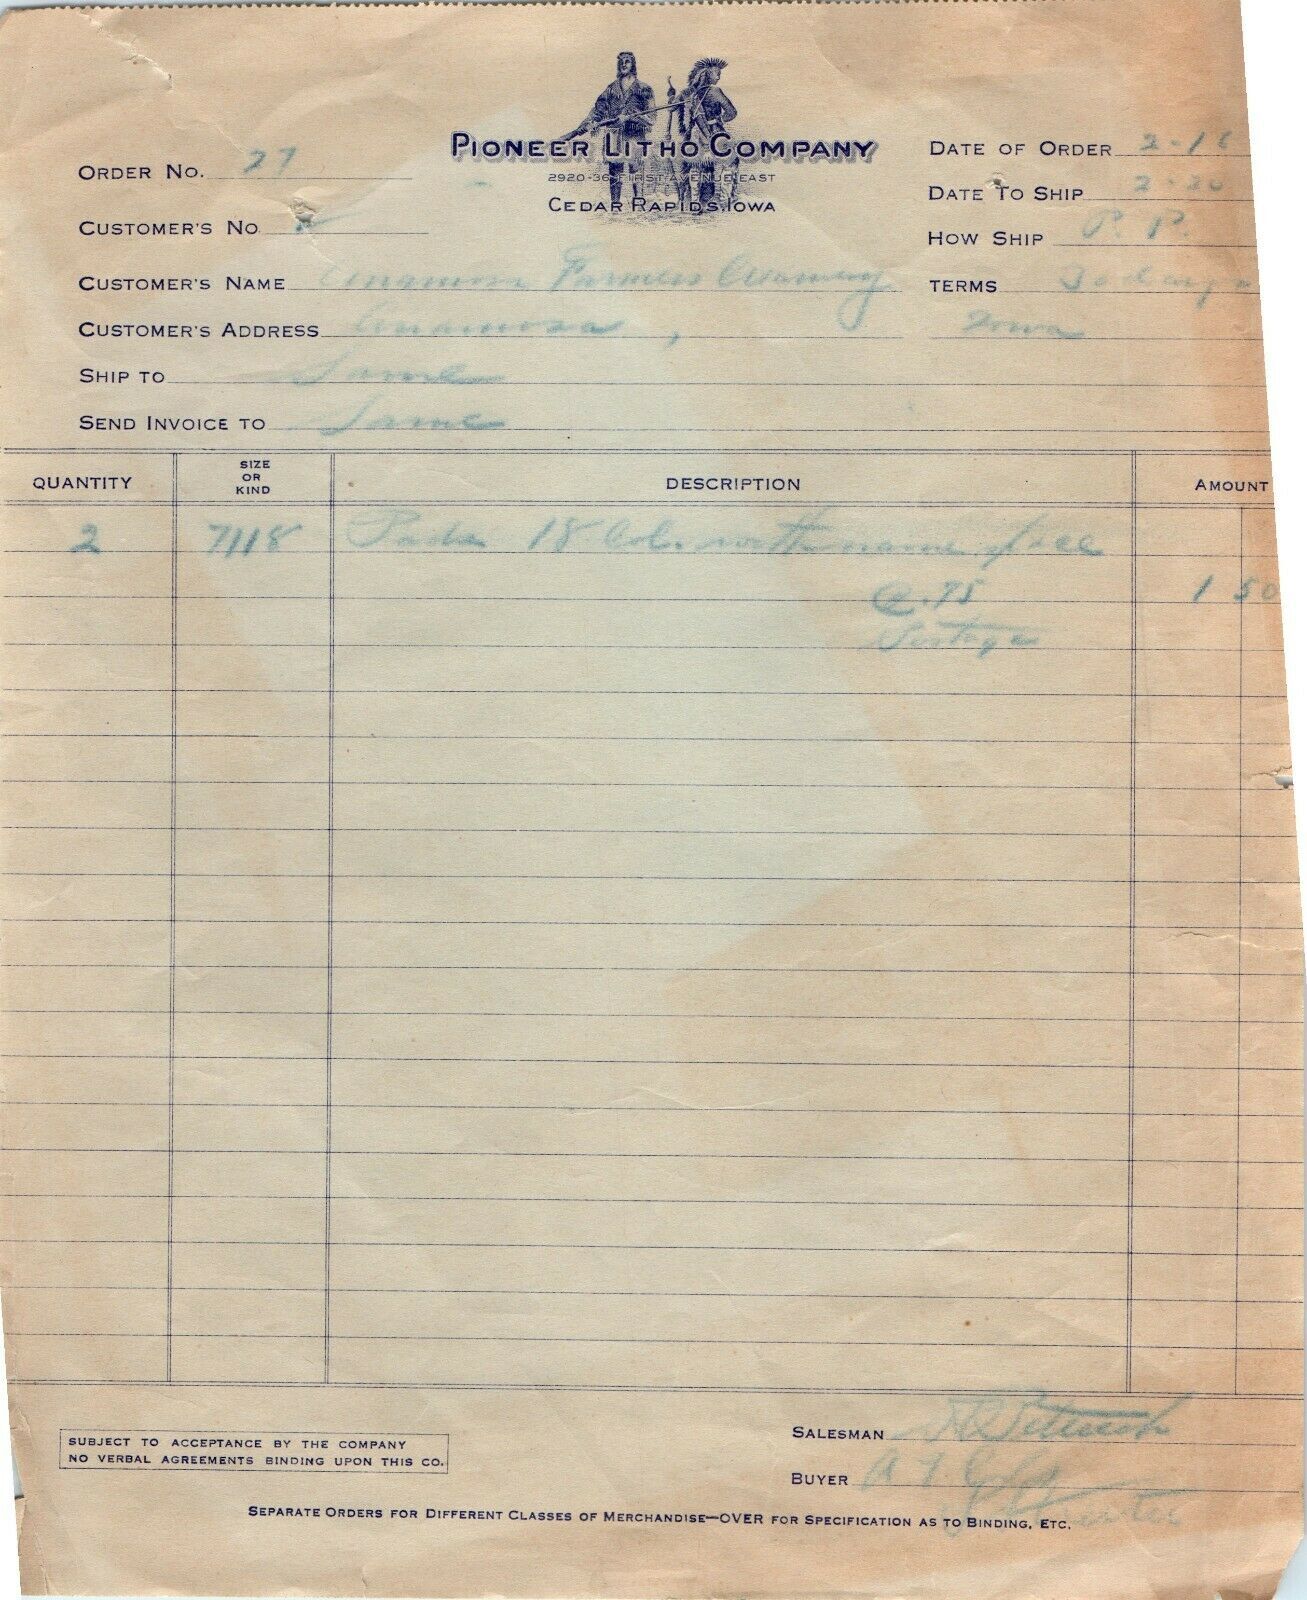 PIONEER LITHO COMPANY
2920-36 FIRST AVENUE EAST
CEDAR RAPIDS, IOWA
ORDER NO. 27
DATE OF ORDER 2-18
DATE TO SHIP 2-20
CUSTOMER'S NO
HOW SHIP P. P.
CUSTOMER'S NAME Anamosa Farmers Creamery
TERMS 30 days
CUSTOMER'S ADDRESS Anamosa, Iowa
SHIP TO Same
SEND INVOICE TO Same
QUANTITY SIZE OR KIND DESCRIPTION AMOUNT
2 7118 Pads 18 Col. with name
@ .75 1 50
Postage
SALESMAN
SUBJECT TO ACCEPTANCE BY THE COMPANY
NO VERBAL AGREEMENTS BINDING UPON THIS CO.
BUYER
SEPARATE ORDERS FOR DIFFERENT CLASSES OF MERCHANDISE—OVER FOR SPECIFICATION AS TO BINDING, ETC.